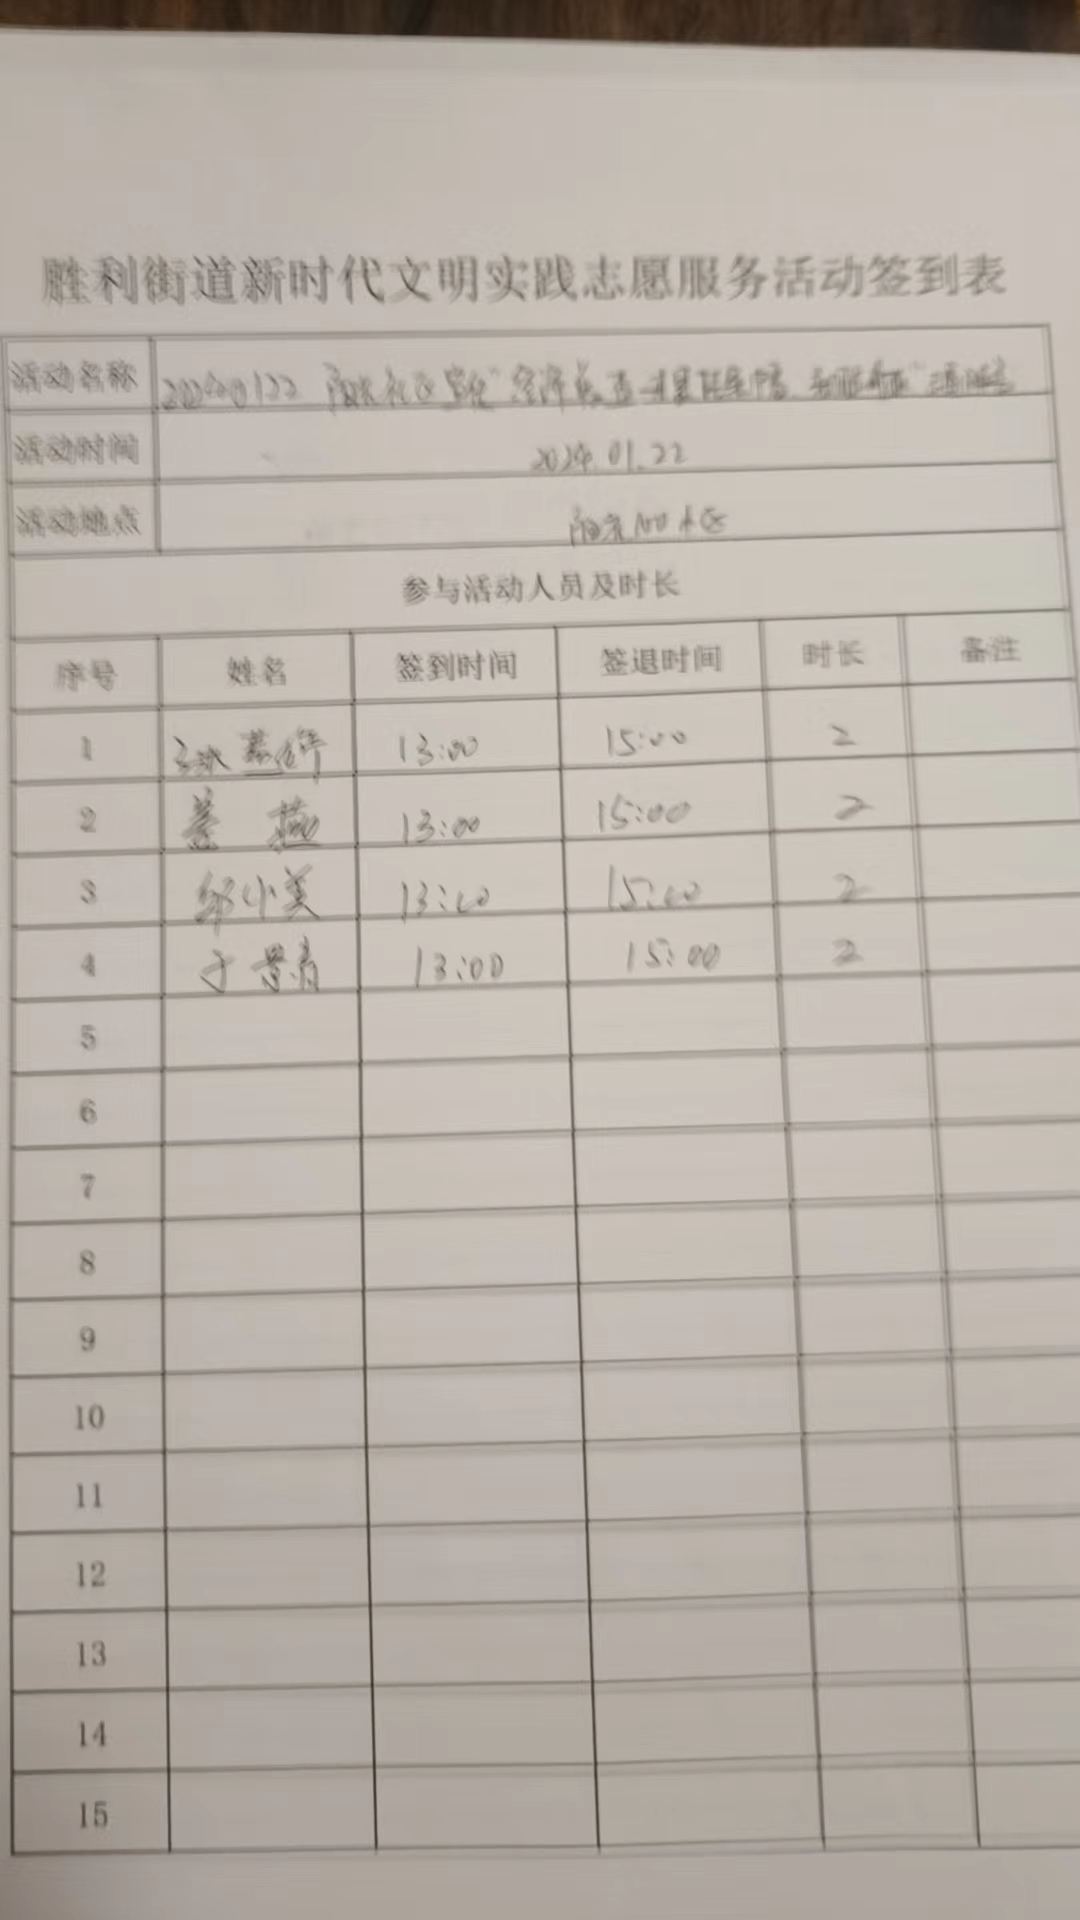 胜利街道新时代文明实践志愿服务活动签到表
活动名称 20240122
活动时间 2024.01.22
活动地点 阳光100小区
参与活动人员及时长
序号 姓名 签到时间 签退时间 时长 备注
1 13:00 15:00 2
2 燕 13:00 15:00 2
3 邹小美 13:00 15:00 2
4 于 13:00 15:00 2
5
6
7
8
9
10
11
12
13
14
15